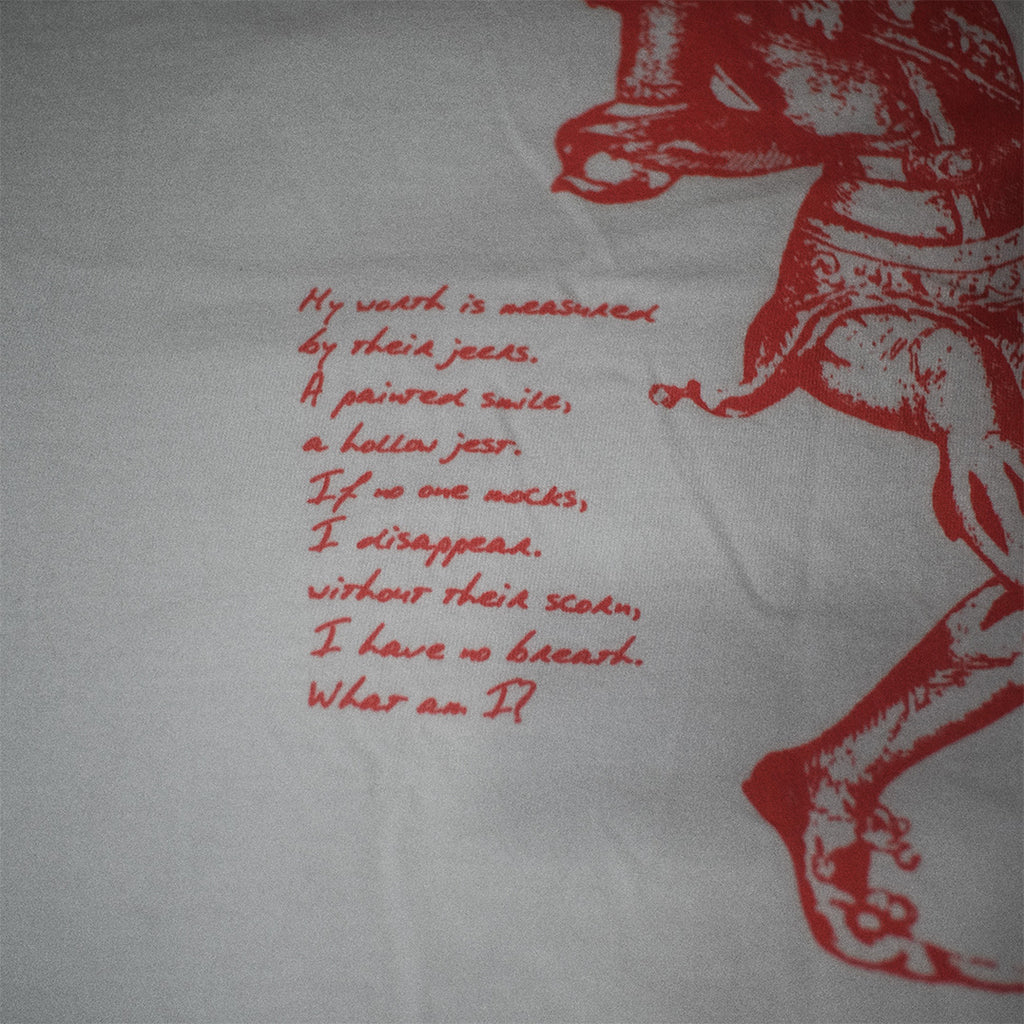 My worth is measured
by their jeers.
A painted smile,
a hollow jest.
If no one mocks,
I disappear.
without their scorn,
I have no breath.
What am I?